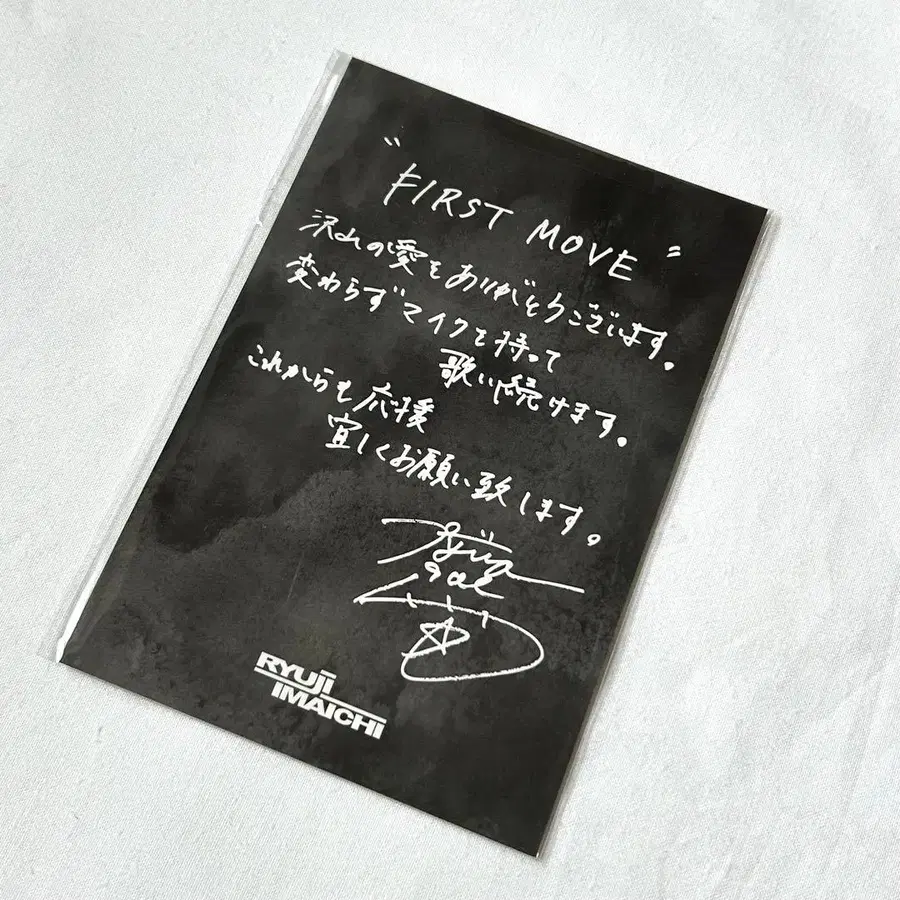 "FIRST MOVE"
沢山の愛をありがとうございます。
変わらずマイクを持って
歌い続けます。
これからも応援
宜しくお願い致します。
RYUJI
IMAICHI